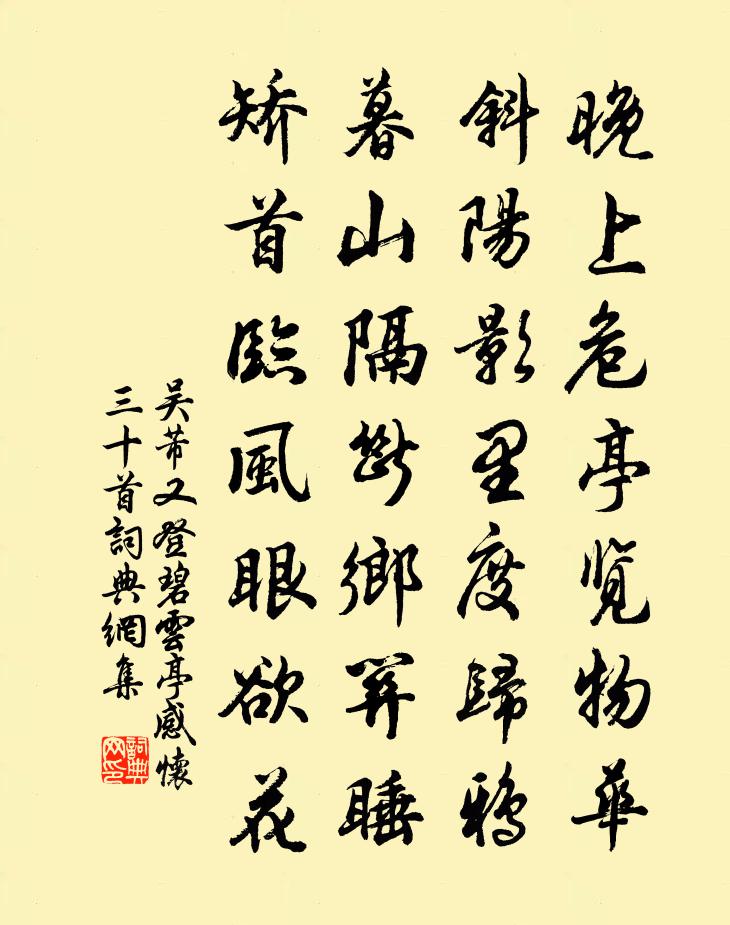 晚上危亭览物華
斜陽影里度歸鴉
暮山隔斷鄉關睡
矯首臨風眼欲花
吴芾又登碧雲亭感懷
三十首詞典網集
詞典
网印